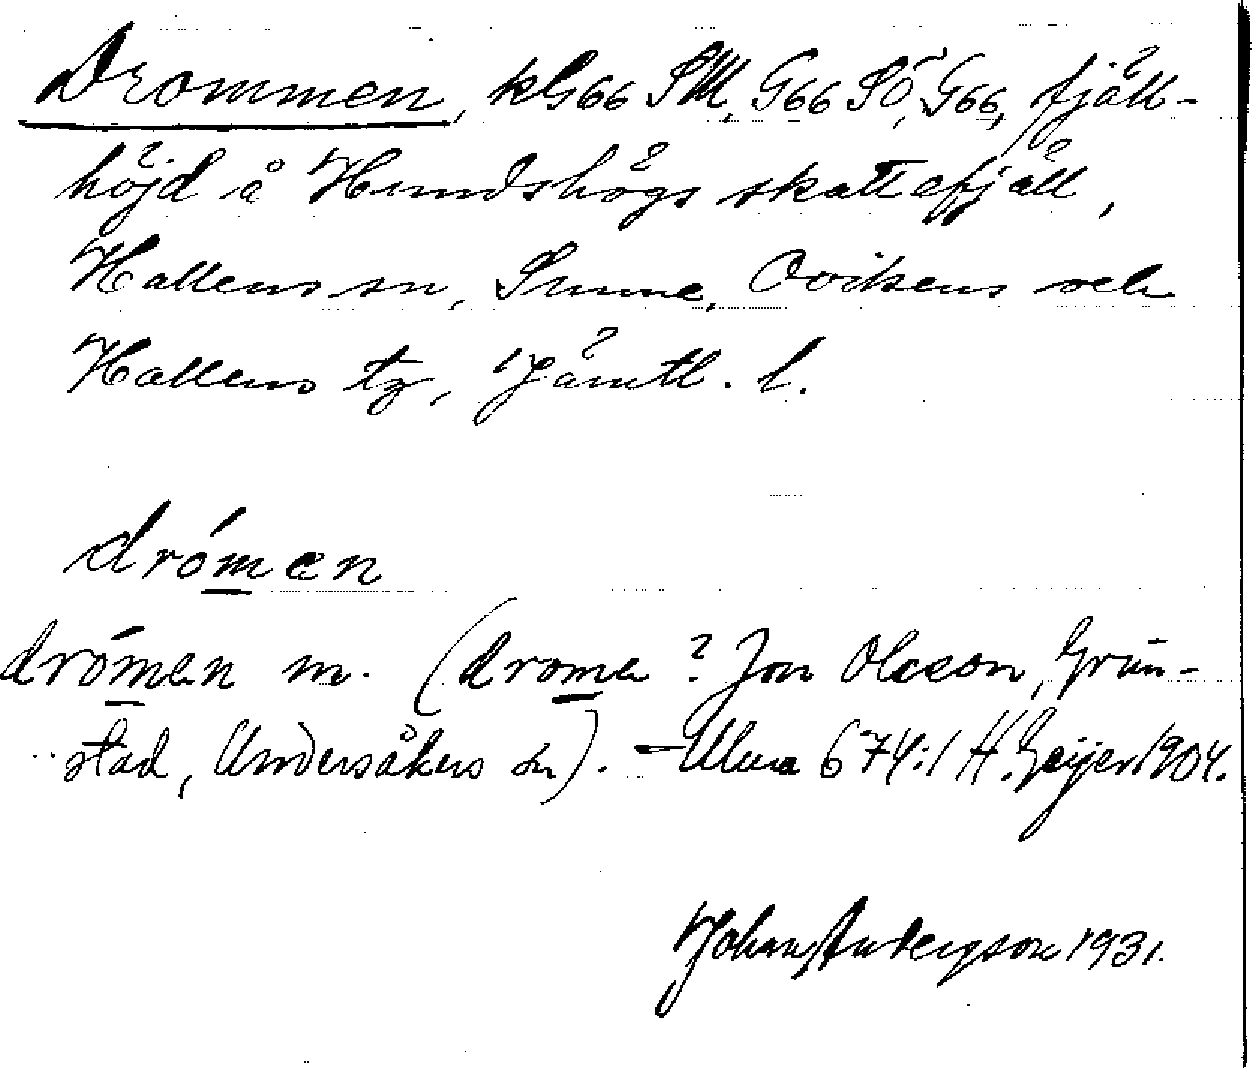 Drommen, kG66 SV, G66 SÖ, G66, fjäll-
höjd å Hundshögs skattefjäll,
Hallens sn, Sunne, Ovikens och
Hallens tg, Jämtl. l.
drómen
drómen m. (drome ? Jon Olsson, Grün-
stad, Undersåkers sn). - Ulma 674:1 H. Geijer 1904.
Johan Anderzson 1931.